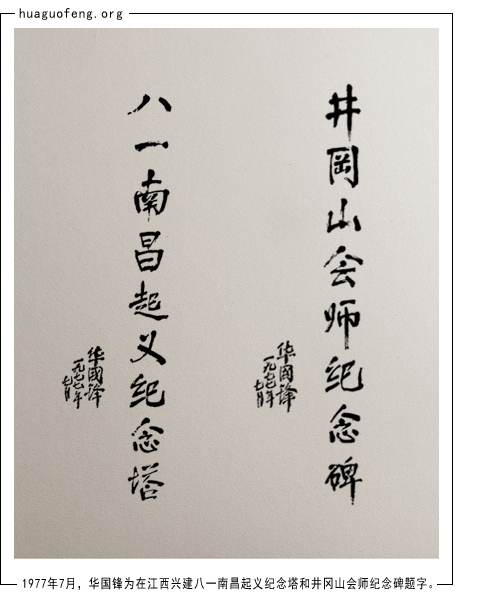 huaguofeng.org
井冈山会师纪念碑
华國锋
一九七七年
七月
八一南昌起义纪念塔
华國锋
一九七七年
七月
1977年7月，华国锋为在江西兴建八一南昌起义纪念塔和井冈山会师纪念碑题字。